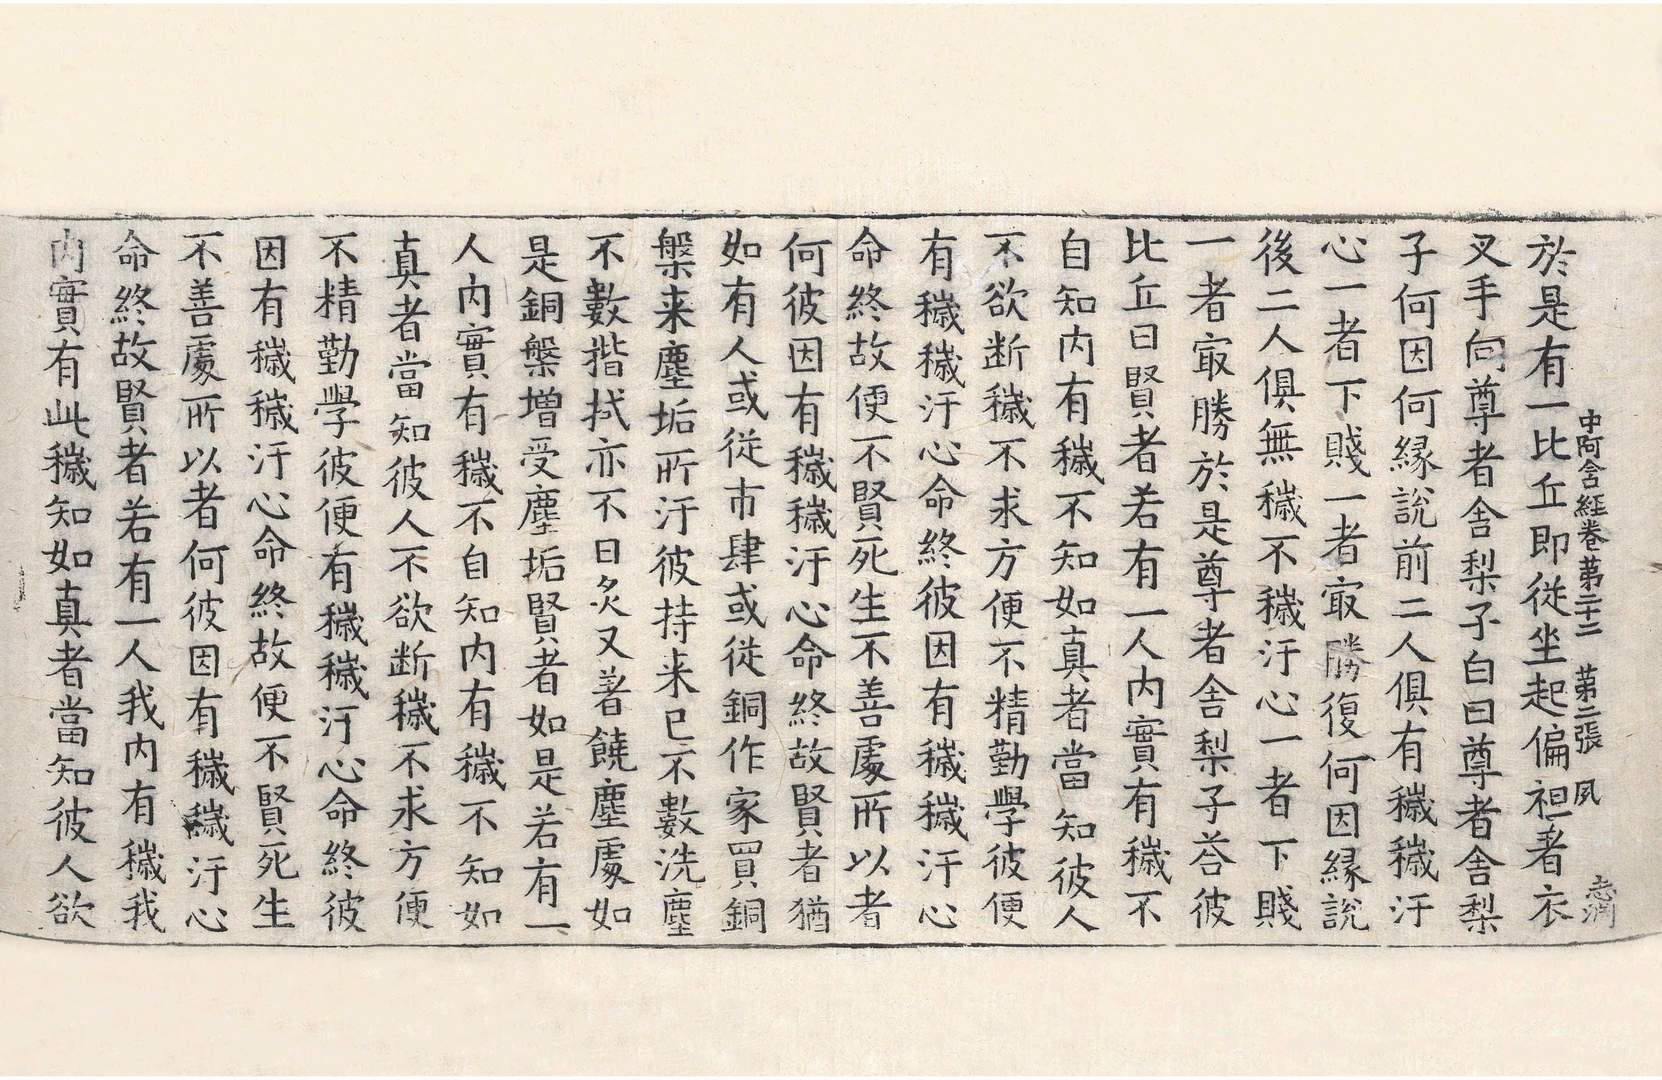 中阿含経卷苐二十二 苐二張 夙
志潤
於是有一比丘即従坐起偏袒著衣
叉手向尊者舎梨子白曰尊者舎梨
子何因何縁說前二人俱有穢穢汙
心一者下賤一者㝡勝復何因縁說
後二人俱無穢不穢汙心一者下賤
一者㝡勝於是尊者舎梨子荅彼
比丘曰賢者若有一人内實有穢不
自知内有穢不知如真者當知彼人
不欲断穢不求方便不精勤學彼便
有穢穢汙心命終彼因有穢穢汙心
命終故便不賢死生不善處所以者
何彼因有穢穢汙心命終故賢者猶
如有人或従市肆或従銅作家買銅
槃来塵垢所汙彼持来已不數洗塵
不數揩拭亦不日炙又著饒塵處如
是銅槃增受塵垢賢者如是若有一
人内實有穢不自知内有穢不知如
真者當知彼人不欲断穢不求方便
不精勤學彼便有穢穢汙心命終彼
因有穢穢汙心命終故便不賢死生
不善處所以者何彼因有穢穢汙心
命終故賢者若有一人我内有穢我
内實有此穢知如真者當知彼人欲